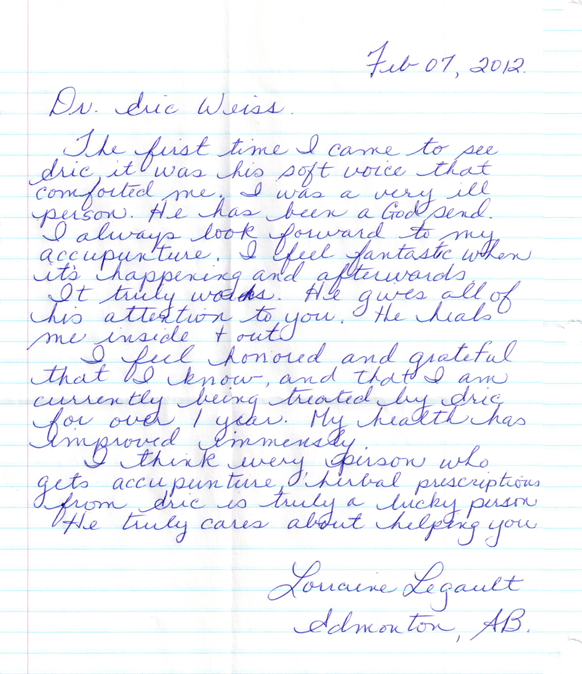 Feb 07, 2012.
Dr. Eric Weiss.
The first time I came to see
Eric it was his soft voice that
comforted me. I was a very ill
person. He has been a God send.
I always look forward to my
accupunture. I feel fantastic when
it's happening and afterwards
It truly works. He gives all of
his attention to you. He heals
me inside + out.
I feel honored and grateful
that I know, and that I am
currently being treated by Eric
for over 1 year. My health has
improved immensly.
I think every person who
gets accupunture, herbal prescriptions
from Eric is truly a lucky person
He truly cares about helping you
Lorraine Legault
Edmonton, AB.